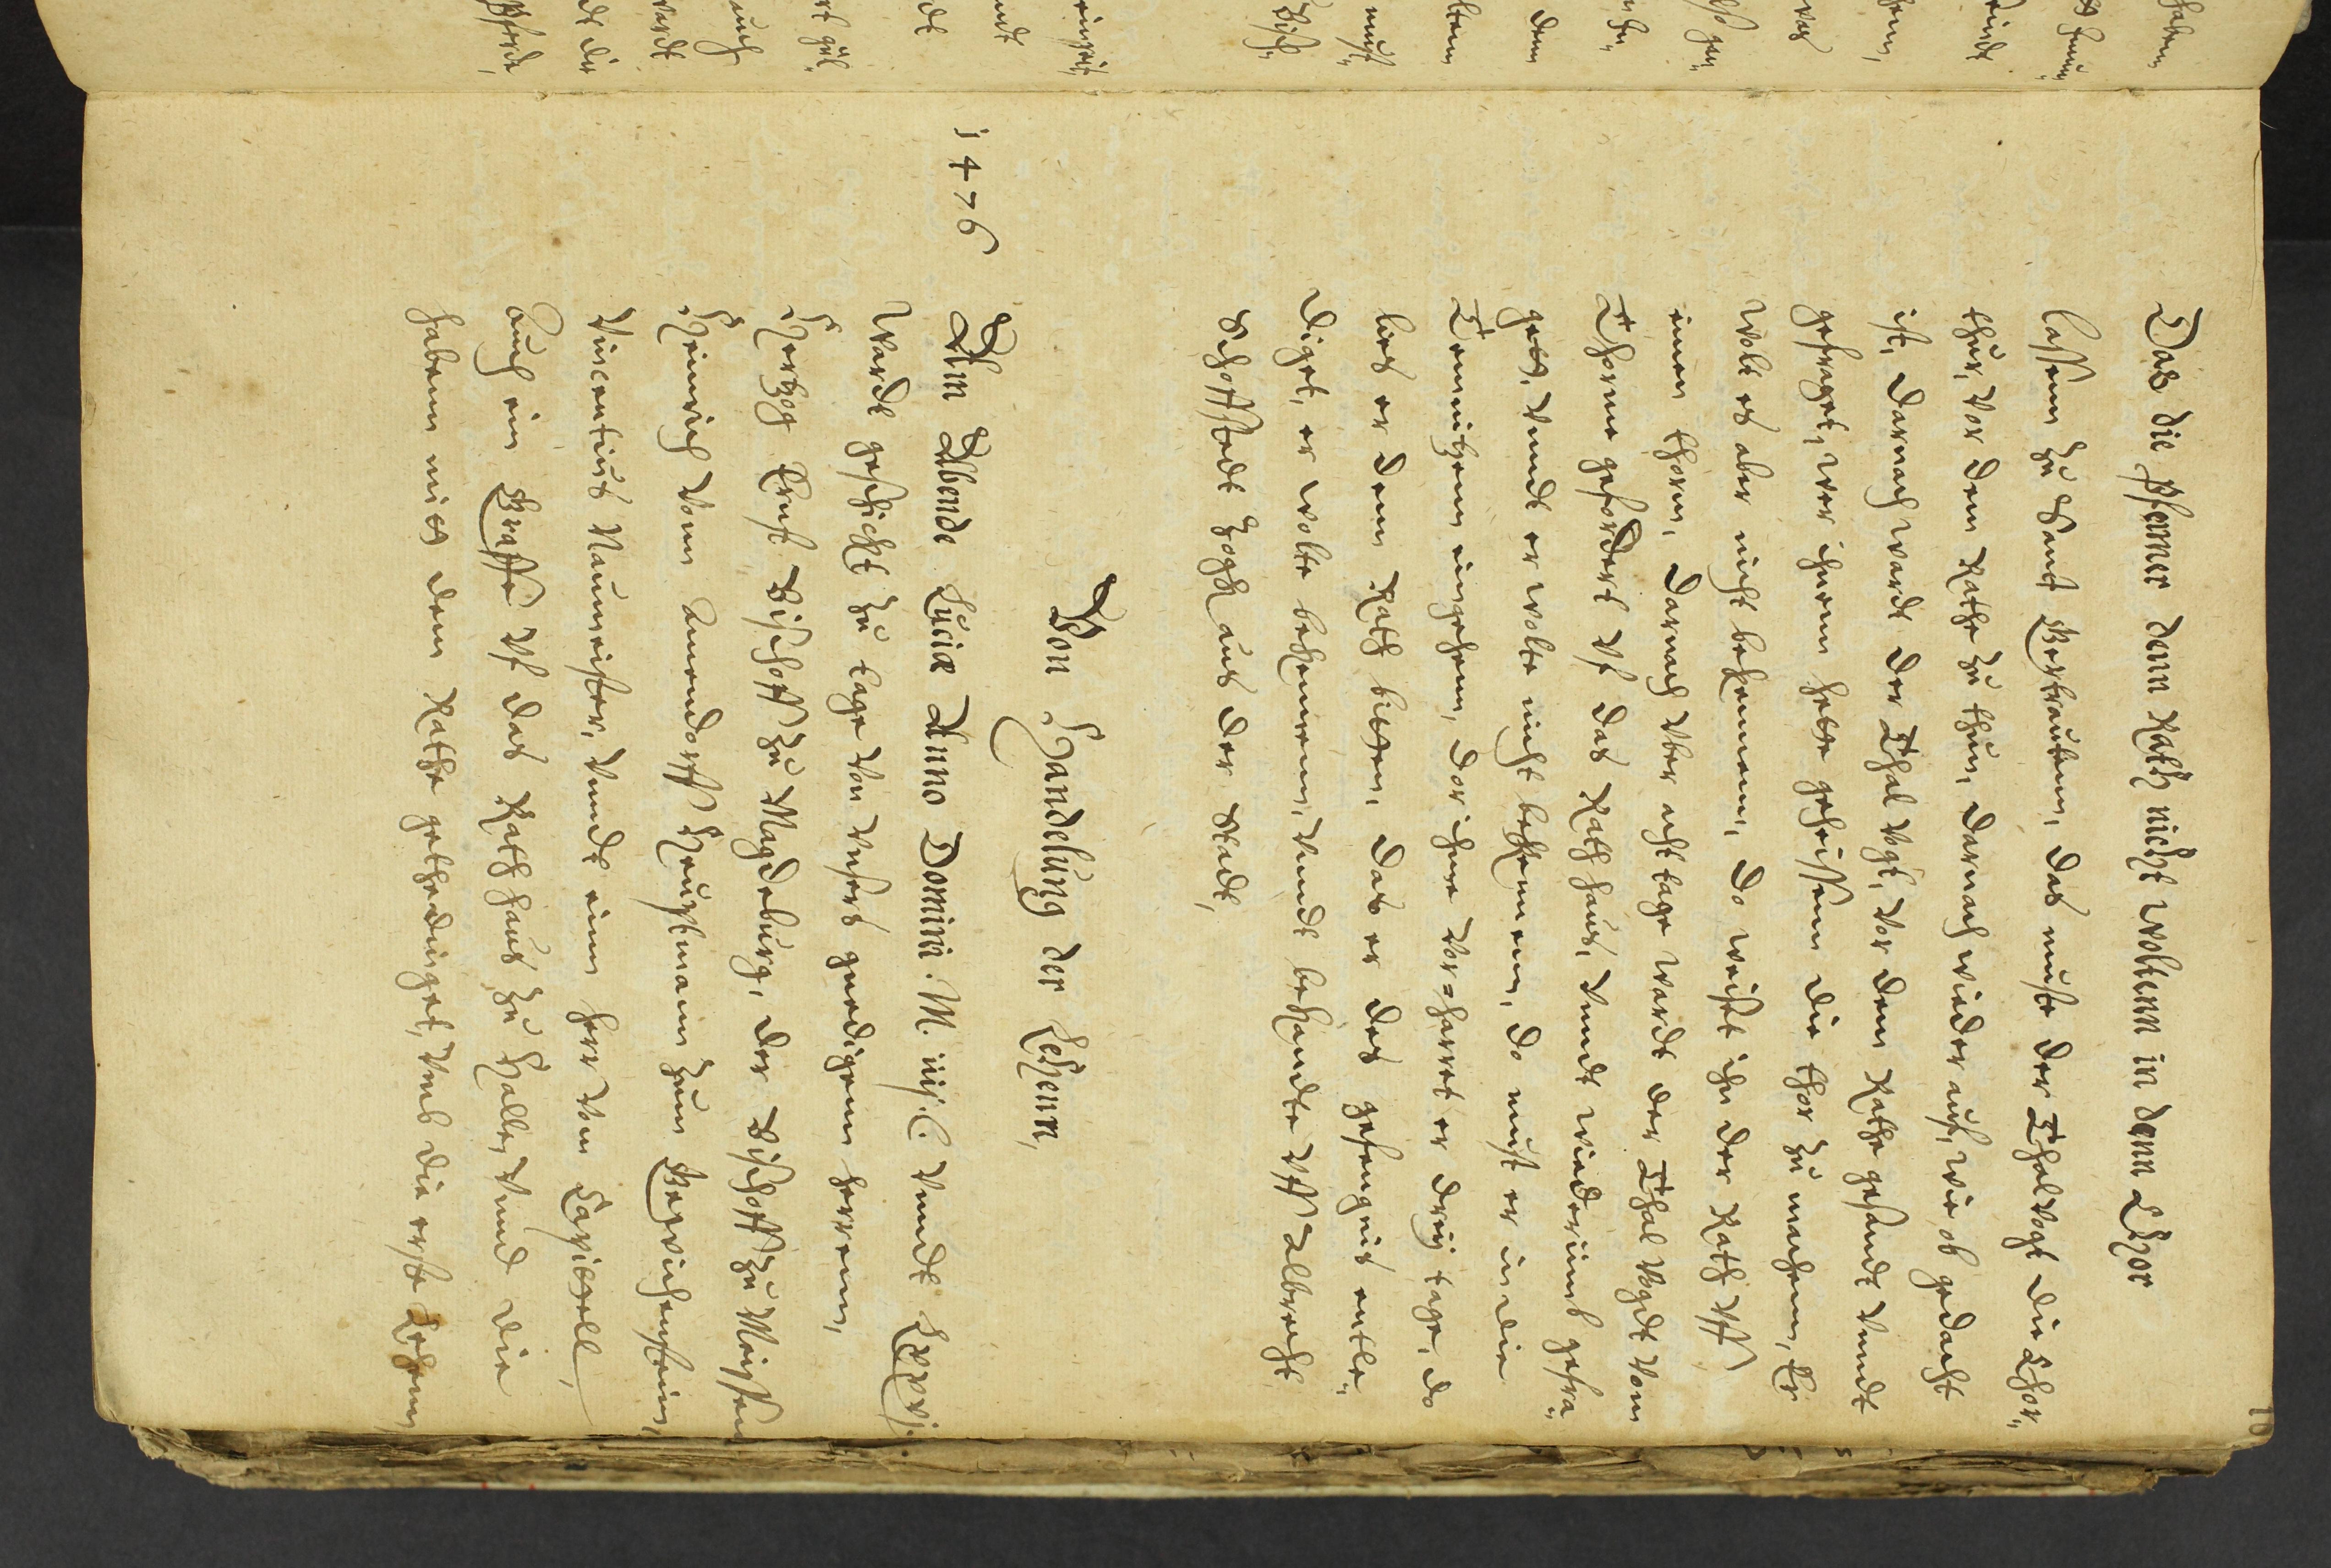 10
Das die pfenner denn Rath nicht woltenn in denn Thor
lassenn zu Sant Gertrauten, das muste der Thalvogt die Thor„
thur, vor dem Rathe zu thun, darnach wieder auf, wie ob gedacht
ist, Darnach wardt der Thalvogt, vor dem Rathe gesandt vnndt
gefraget, wer ihnen hette geheissenn die thor zu machenn, Er
wolt es aber nicht bekennen, Do weiset ihn der Rath vff
einen thorm, Darnach vber acht tage wardt der Thalvogdt vom
Thorme gefordert vf das Rathhaus, vnndt wiederumb gefra„
get, vnndt er wolte nicht bekennen, do must er in die
Temnitzenn eingehenn, Dor ihne vor=harret er drey tage, do
lies er dem Rath bitten, das er des gefengnis entle„
diget, er wolte bekennenn, vnndt bekandte vff Albrecht
Schoffstedt zogk aus der Stadt,
Von Handelung der Lehenn,
1476 Am Abende Luciæ Anno Domini. M. iiij.C. vnndt Lxxvj.
Wardt geschickt zu tage von vnsers gnedigenn herrenn,
Hertzog Ernst Bischoff zu Magdeburg, der Bischoff zu Meissen
Heinrich vonn Amendorff Heuptmann zum Gebichenstein,
Vincentius Naumeister, vnndt einn herr von Capittell,
Auch ein Graffe vf das Rathhaus zu Halle, vnnd die
habenn mit dem Rathe gethedinget, vmb die erste Lehenn